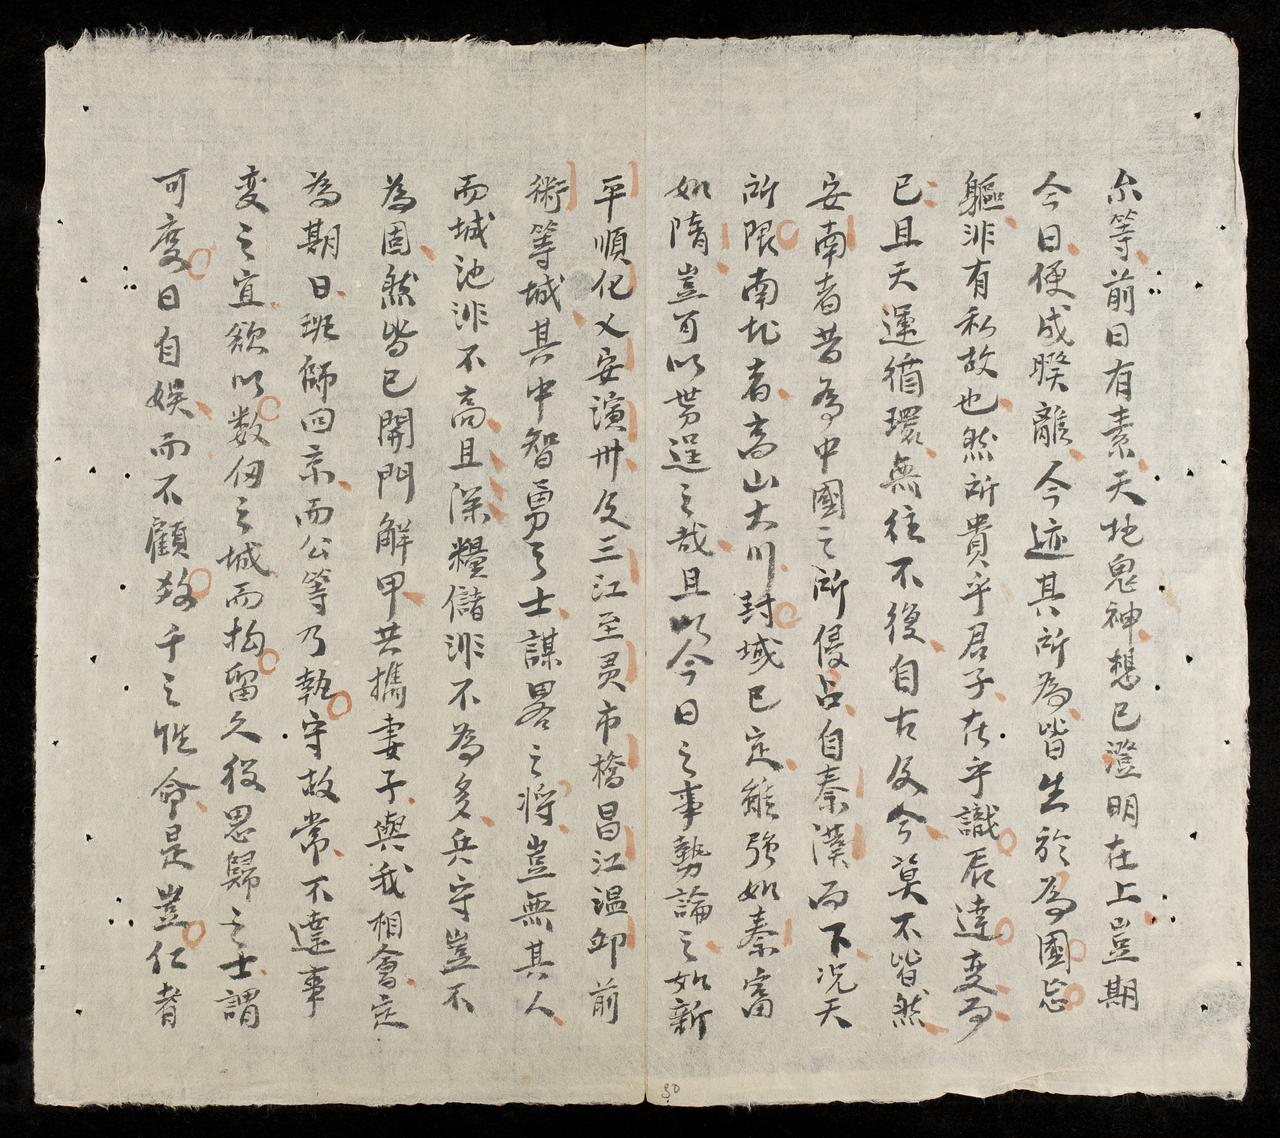 尒等前日有素天地鬼神想已澄明在上豈期
今日便成暌離今迹其所為皆生於為國忘
軀非有私故也然所貴乎君子在乎識辰達变而
已且天運循環無往不復自古及今莫不皆然
安南者昔為中國之所侵占自秦漢而下况天
所限南北者高山大川封域已定雖強如秦富
如隋豈可以势逞之哉且以今日之事勢論之如新
平順化乂安演州及三江至灵市橋昌江温邱前
術等城其中智勇之士謀畧之将豈無其人
而城池非不高且深糧儲非不為多兵守豈不
為固然皆已開門解甲共攜妻子與我相會定
為期日班師回京而公等乃執守故常不達事
变之宜欲以数仭之城而拘留久役思歸之士謂
可度日自娱而不顧数千之性命是豈仁者
30